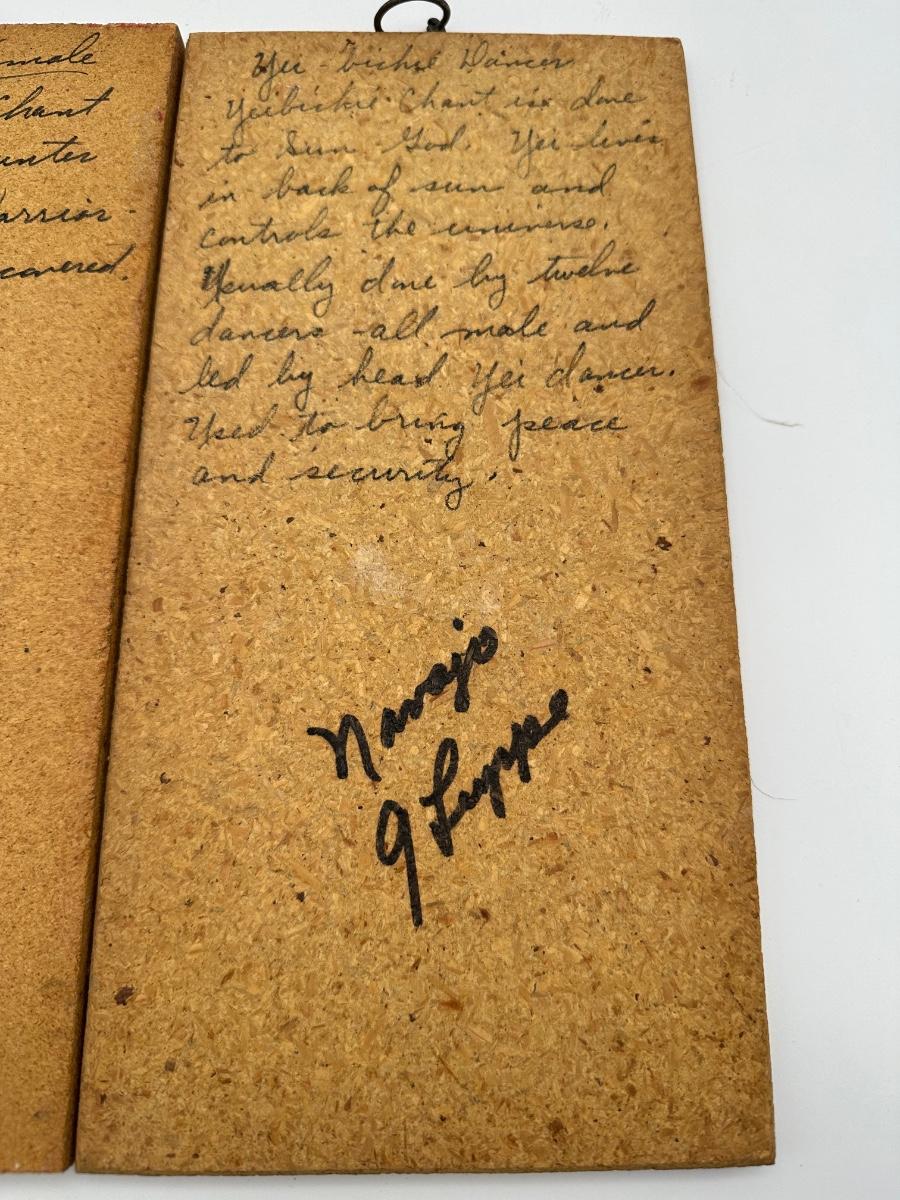 male
Chant
unter
arrior-
covered.
Yei-bichei Dancer
Yeibichie Chant is done
to Sun God. Yei lives
in back of sun and
controls the universe.
Usually done by twelve
dancers - all male and
led by head Yei dancer.
Used to bring peace
and security.
Navajo
J Suppe